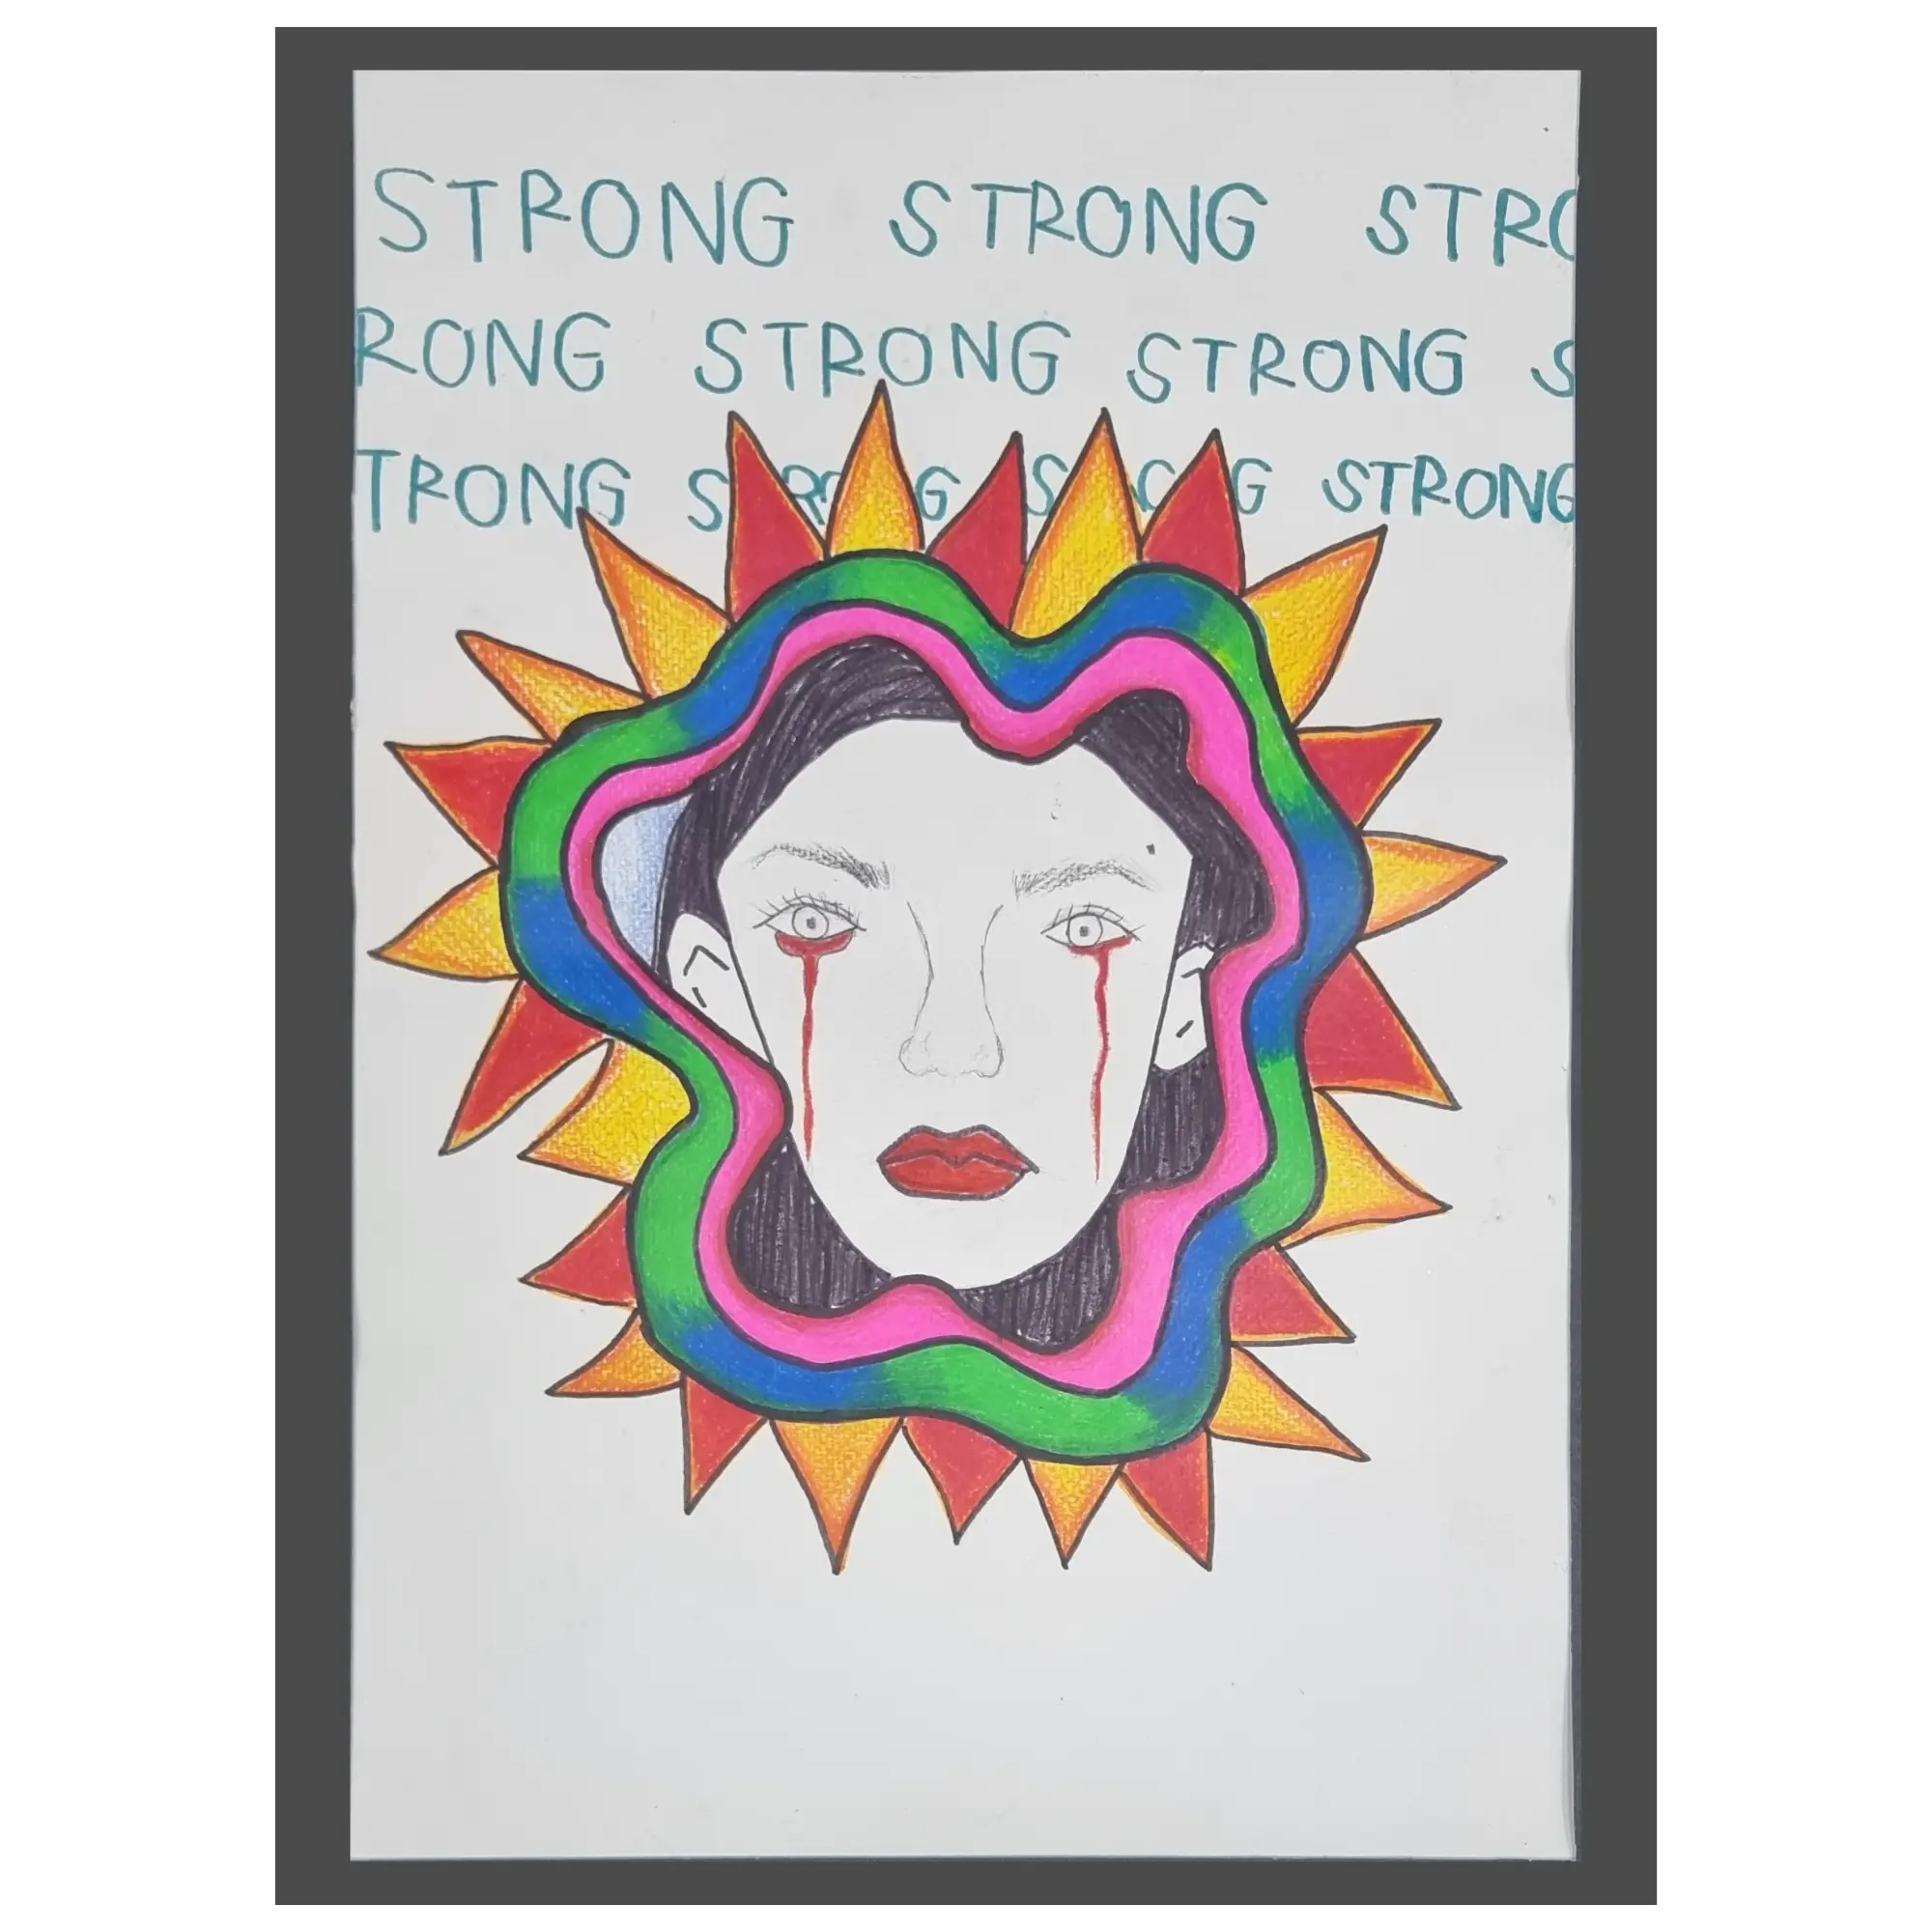 STRONG STRONG STRO
RONG STRONG STRONG S
TRONG S RO G S NG STRONG